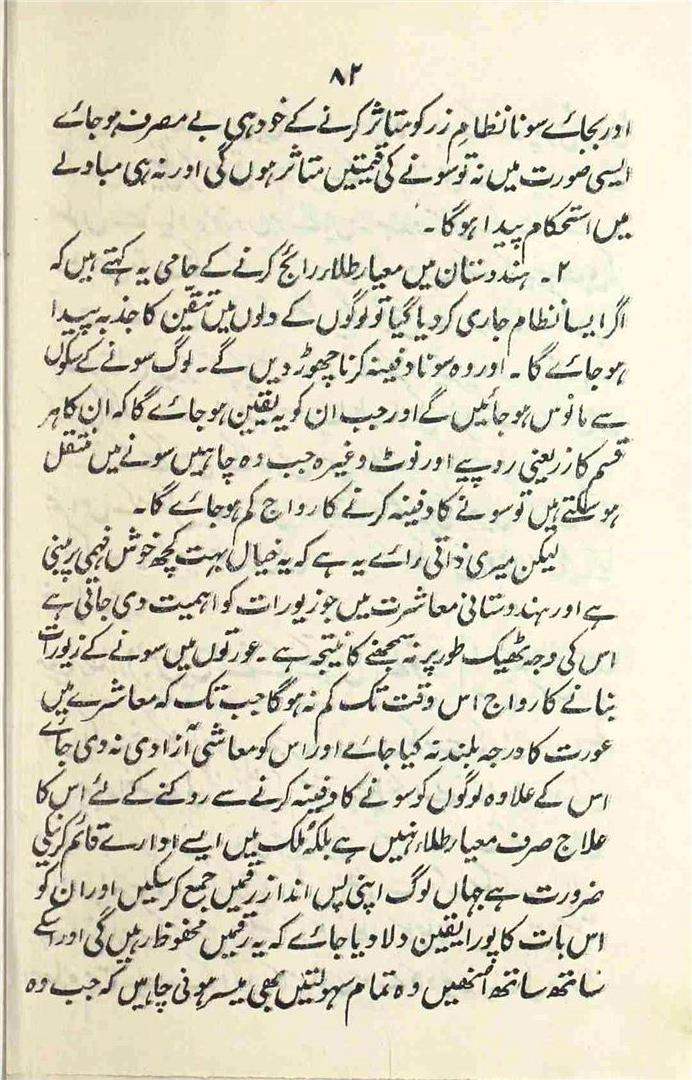 ۸۲
اور بجائے سونا نظامِ زر کو متاثر کرنے کے خود ہی بے مصرف ہو جائے
ایسی صورت میں نہ تو سونے کی قیمتیں متاثر ہوں گی اور نہ ہی مبادلے
میں استحکام پیدا ہوگا۔
۲۔ ہندوستان میں معیار طلاء رائج کرنے کے حامی یہ کہتے ہیں کہ
اگر ایسا نظام جاری کر دیا گیا تو لوگوں کے دلوں میں تیقّن کا جذبہ پیدا
ہو جائے گا۔ اور وہ سونا دفینہ کرنا چھوڑ دیں گے۔ لوگ سونے کے سکوں
سے مانوس ہو جائیں گے اور جب ان کو یہ یقین ہو جائے گا کہ ان کا ہر
قسم کا زر یعنی روپیے اور نوٹ وغیرہ جب وہ چاہیں سونے میں منتقل
ہو سکتے ہیں تو سونے کا دفینہ کرنے کا رواج کم ہو جائے گا۔
لیکن میری ذاتی رائے یہ ہے کہ یہ خیال بہت کچھ خوش فہمی پر مبنی
ہے اور ہندوستانی معاشرت میں جو زیورات کو اہمیت دی جاتی ہے
اس کی وجہ ٹھیک طور پر نہ سمجھنے کا نتیجہ ہے۔ عورتوں میں سونے کے زیورات
بنانے کا رواج اس وقت تک کم نہ ہوگا جب تک کہ معاشرے میں
عورت کا درجہ بلند نہ کیا جائے اور اس کو معاشی آزادی نہ دی جائے
اس کے علاوہ لوگوں کو سونے کا دفینہ کرنے سے روکنے کے لئے اس کا
علاج صرف معیار طلاء نہیں ہے بلکہ ملک میں ایسے ادارے قائم کرنیکی
ضرورت ہے جہاں لوگ اپنی پس انداز رقمیں جمع کر سکیں اور ان کو
اس بات کا پورا یقین دلا دیا جائے کہ یہ رقمیں محفوظ رہیں گی اور اسکے
ساتھ ساتھ انھیں وہ تمام سہولتیں بھی میسر ہونی چاہیں کہ جب وہ